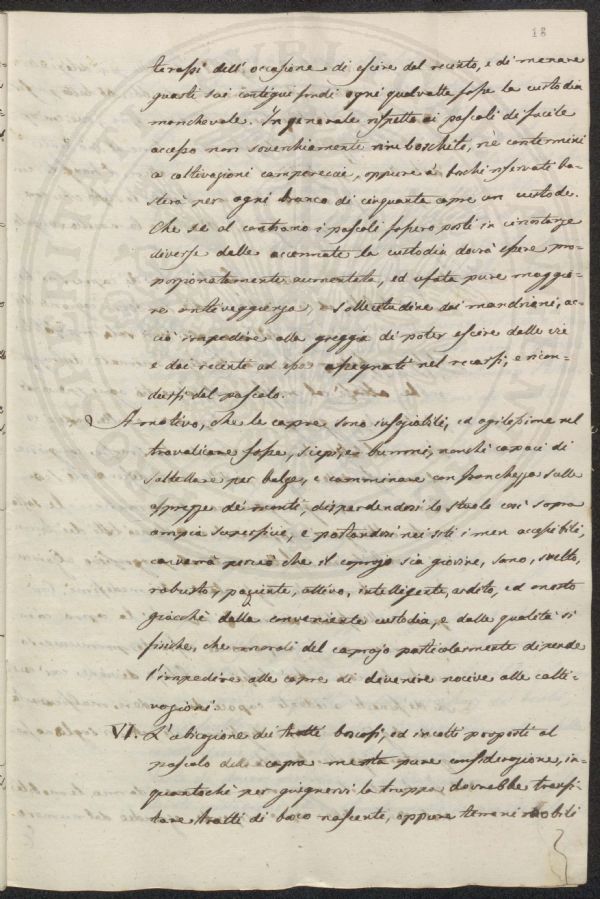 18
terassi dell'occasione di escire dal recinto, e di menare
guasti sui contigui fondi ogni qualvolta fosse la custodia
manchevole. In generale rispetto ai pascoli di facile
accesso non soverchiamente rimboschiti, nè contermini
a coltivazioni camperecie, oppure a boschi riservati ba-
sterà per ogni branco di cinquanta capre un custode.
Che se al contrario i pascoli fossero posti in circostanze
diverse dalle accennate la custodia dovrà essere pro-
porzionatamente aumentata, ed usata pure maggio-
re antiveggienza, sollecitudine dai mandriani, ac-
ciò impedire alla greggia di poter escire dalle vie
e dai recinti ad essa assegnati nel recarsi, e ricon-
dursi dal pascolo.
A motivo, che le capre sono insaziabili, ed agilissime nel
travalicare fosse, siepi, e burroni, nonchè capaci di
saltellare per balze, e camminare con franchezza sulle
asprezze dei monti, disperdendosi lo stuolo così sopra
ampia superficie, e portandosi nei siti i men accessibili,
converrà perciò che il caprajo sia giovine, sano, svelto,
robusto, paziente, attivo, intelligente, ardito, ed onesto
giacchè dalla conveniente custodia, e dalle qualità sì
fisiche, che morali del caprajo particolarmente dipende
l'impedire alle capre di devenire nocive alle colti-
vazioni.
VI. L'ubicazione dei tratti boscosi, ed incolti proposti al
pascolo delle capre merita pure considerazione, in-
quantochè per giugnervi la truppa dovrebbe transi-
tare tratti di bosco nascente, oppure terreni mobili